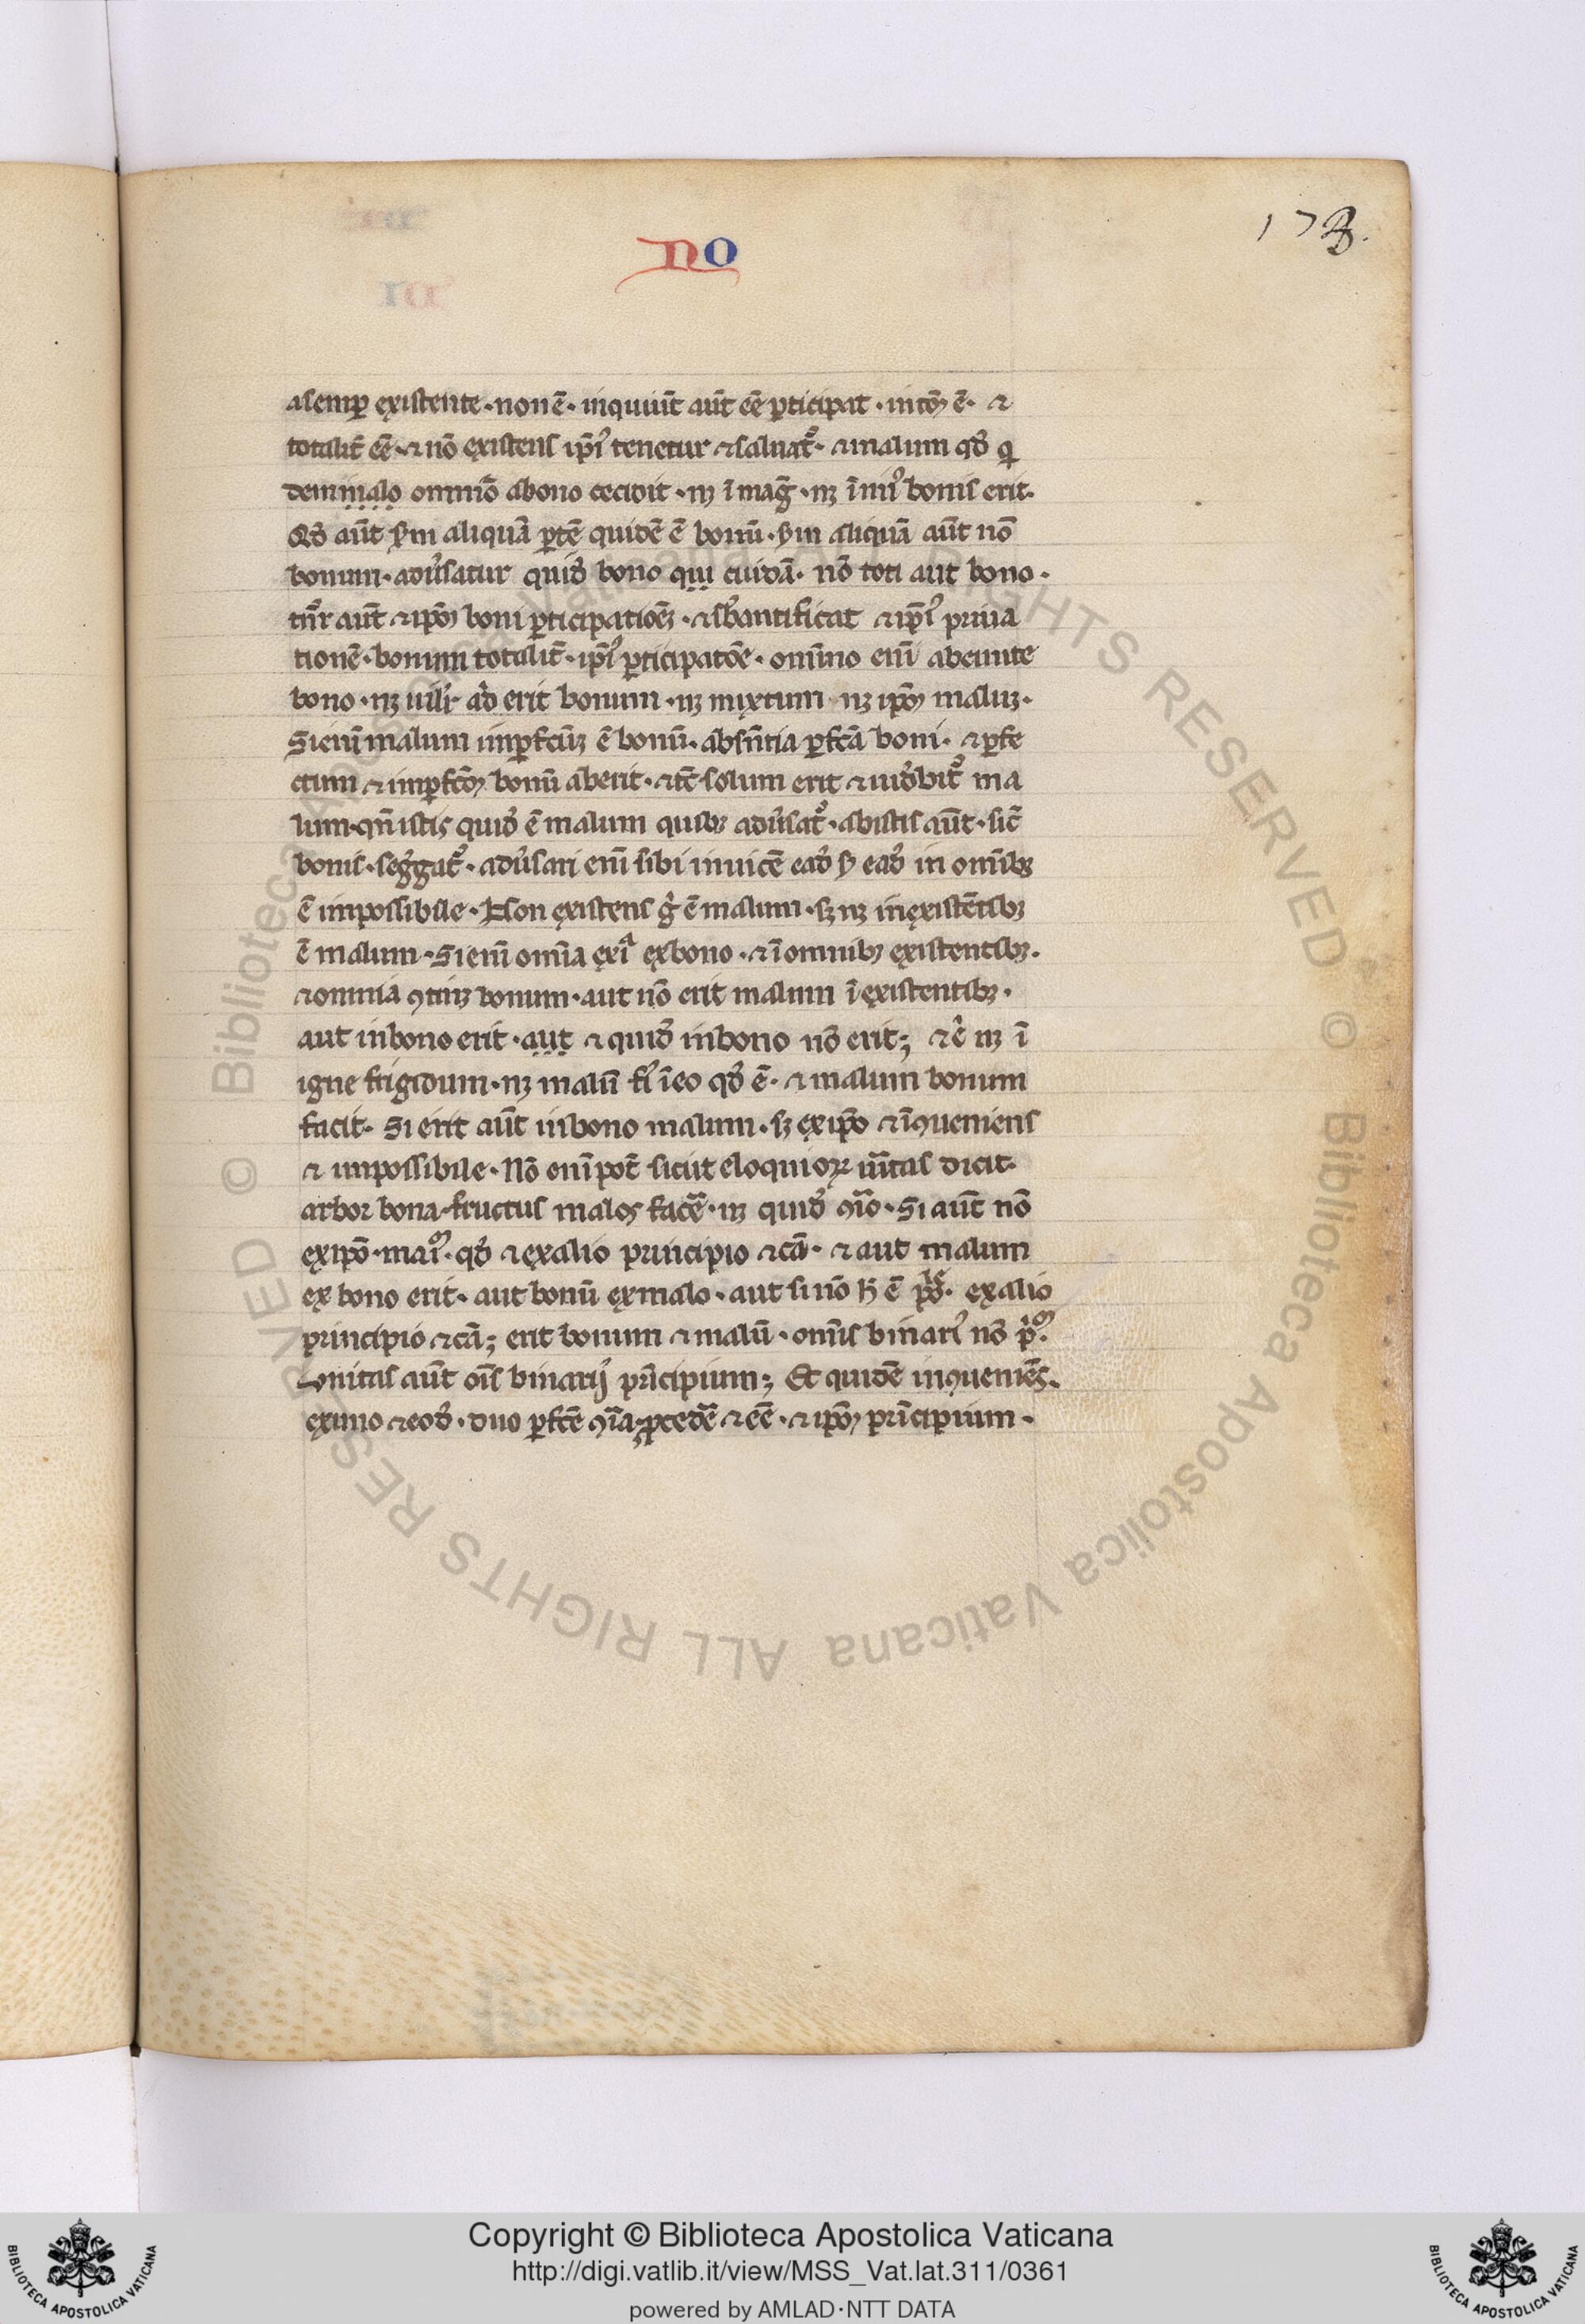 no
178.
asemꝑ existente · non ē · inquūt aūt eē ꝑticipat · intm̄ ē · ⁊
totalit̄ eē · ⁊ nō existens ip̄iꝰ tenetur ⁊ saluat᷑ · ⁊ malum qđ ꝙ
demmalo omniō abono cecidit · nꝫ ī maḡ · nꝫ ī mīꝰ bonis erit ·
Qđ aūt sm aliquā ꝑtē quidē ē bonū · sm aliquā aūt nō
bonum · adūsatur quiđ bono qui cuidā · nō toti aut bono ·
tn̄r aūt ⁊ ip̄m boni ꝑticipatiōeꝫ · ⁊ sb̄antificat ⁊ ip̄iꝰ priua
tionē · bonum totalit̄ · ip̄iꝰ ꝑticipatōe · omīno enī abeunte
bono · nꝫ uilr ađ erit bonum · nꝫ mixtum nꝫ ip̄m maluꝫ ·
Si enī malum imꝑfctūꝫ ē bonū · absn̄tia ꝑfctā boni · ⁊ ꝑfe
ctum ⁊ imꝑfctm̄ bonū aberit · ⁊ tc̄ solum erit ⁊ uiđbit᷑ ma
lum · qn̄ istis quiđ ē malum quibꝫ adūsat᷑ · abistis aūt · sic̄
bonis · seg̃gat᷑ · adūsari enī sibi inuicē eađ s eađ in omībꝫ
ē impossibile · Non existens g̊ ē malum · sꝫ nꝫ inexistētibꝫ
ē malum · Si enī omīa exīᵃ exbono · ⁊ ī omnibꝫ existentibꝫ ·
⁊ omnia ꝯtinꝫ bonum · aut nō erit malum ī existentibꝫ ·
aut inbono erit · aut ⁊ quiđ inbono nō erit ; ⁊ c̄ nꝫ ī
igne frigidum · nꝫ malū fī īeo qđ ē · ⁊ malum bonum
facit · Si erit aūt inbono malum · sꝫ exip̄o ⁊ īꝯueniens
⁊ impossibile · Nō enī pot̄ sicut eloquioꝝ ūitas dicit ·
arbor bona · fructus malos facē · nꝫ quiđ ꝯ̄io · Si aūt nō
exip̄o · maī · qđ ⁊ exalio principio ⁊ cā · ⁊ aut malum
ex bono erit · aut bonū exmalo · aut si nō h ē · exalio
principio ⁊ cā ; erit bonum ⁊ malū · omīs binariꝰ nō
unitas aūt oīs binarij prīcipium ; Et quidē inꝯueniēs ·
exuno ⁊ eođ · duo ꝑfctē ꝯ̄ia · ꝓcedē ⁊ eē · ⁊ ip̄m prīcipium ·
© Biblioteca Apostolica Vaticana ALL RIGHTS RESERVED © Biblioteca Apostolica Vaticana ALL RIGHTS RESERVED
BIBLIOTECA APOSTOLICA VATICANA
Copyright © Biblioteca Apostolica Vaticana
http://digi.vatlib.it/view/MSS_Vat.lat.311/0361
powered by AMLAD·NTT DATA
BIBLIOTECA APOSTOLICA VATICANA